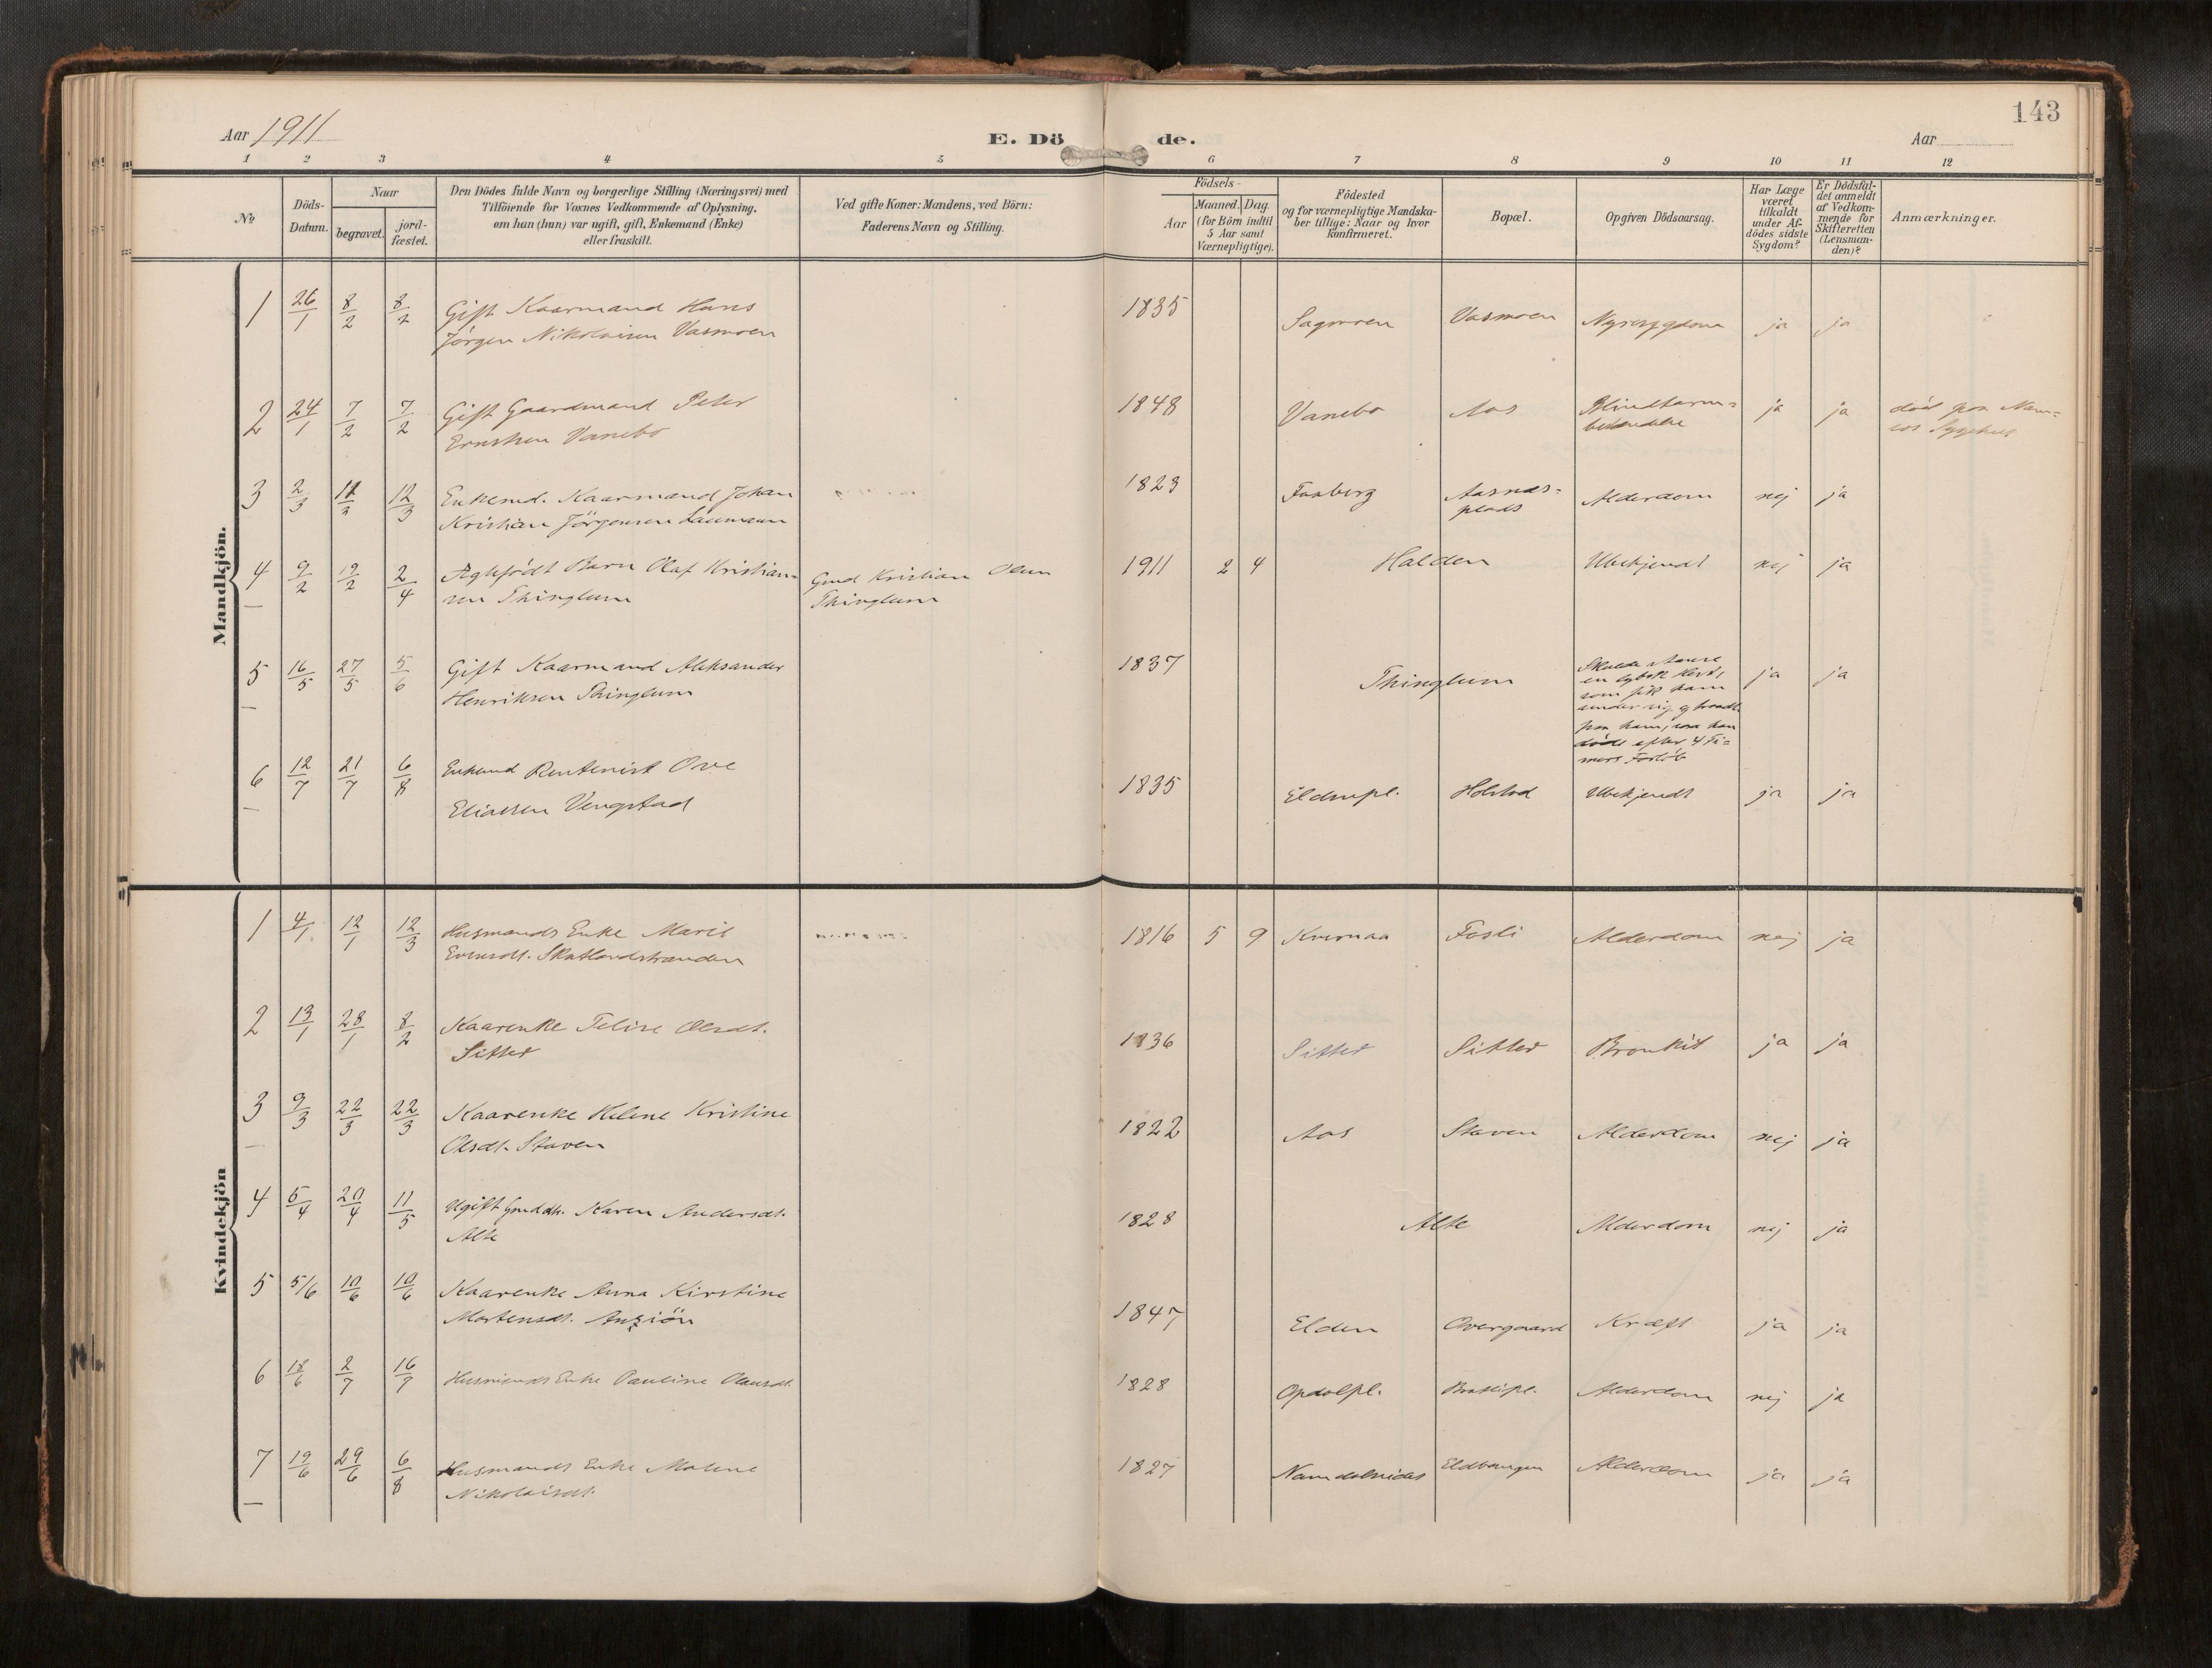 143
Aar 1911
E. Dö de.
Aar
1 2 3 4 5 6 7 8 9 10 11 12
№
Döds-
Datum.
Naar
begravet.
jord-
fæstet.
Den Dödes fulde Navn og borgerlige Stilling (Næringsvei) med
Tilföiende for Voxnes Vedkommende af Oplysning,
om han (hun) var ugift, gift, Enkemand (Enke)
eller fraskilt.
Ved gifte Koner: Mandens, ved Börn:
Faderens Navn og Stilling.
Födsels-
Aar
Maaned. Dag.
(for Börn indtil
5 Aar samt
Værnepligtige).
Födested
og for værnepligtige Mandska-
ber tillige: Naar og hvor
Konfirmeret.
Bopæl.
Opgiven Dödsaarsag.
Har Læge
været
tilkaldt
under Af-
dödes sidste
Sygdom?
Er Dödsfal-
det anmeldt
af Vedkom-
mende for
Skifteretten
(Lensman-
den)?
Anmærkninger.
Mandkjön.
1 26/1 8/2 8/2 Gift Kaarmand Hans 1835 Sagmoen Vasmoen Nyresygdom ja ja
Jörgen Nikolaisen Vasmoen
2 24/1 7/2 7/2 Gift Gaardmand Peter 1848 Vanebo Aas Blindtarm= ja ja död paa Nam=
Ernstsen Vanebo
sos Sygehus
3 2/3 12/3 12/3 Enkemd. Kaarmand Johan 1823 Fosberg Aasnes= Alderdom nej ja
Kristian Jörgensen plads
4 9/2 19/2 2/4 Ægtefödt Barn Olaf Kristian= Gmd Kristian Olsen 1911 2 4 Halden Ubekjendt nej ja
sen Thinglum Thinglum
5 16/5 27/5 5/6 Gift Kaarmand Aleksander 1837 Thinglum ja ja
Henriksen Thinglum
Skulde
en Hest,
som fik ham
under sig og
paa ham, saa han
döde efter 4 Ti=
mers Forlöb
6 12/7 21/7 6/8 Enkemd Rentenist Ove 1835 Eldenpl. Holstad Ubekjendt ja ja
Eliassen Vengstad
Kvindekjön
1 4/1 12/1 12/3 Husmands Enke Marit 1816 5 9 Kvernaa Fosli Alderdom nej ja
Evensdt. Skatlandstranden
2 13/1 28/1 8/2 Kaarenke Olsdt. 1836 Sitter Sitter Bronkit ja ja
Sitter
3 9/3 22/3 22/3 Kaarenke Helene Kristine 1822 Aas Staven Alderdom nej ja
Olsdt. Staven
4 5/4 20/4 11/5 Ugift Gmddtr. Karen Andersdt. 1828 Alte Alderdom nej ja
Alte
5 5/6 10/6 10/6 Kaarenke Anna Kirstine 1847 Elden Overgaard Kræft ja ja
Mortensdt.
6 18/6 2/7 16/9 Husmands Enke Pauline Olausdt. 1828 Opdalpl. Alderdom nej ja
7 19/6 29/6 6/8 Husmands Enke Malene 1827 Namdalseidet Alderdom ja ja
Nikolaisdt.